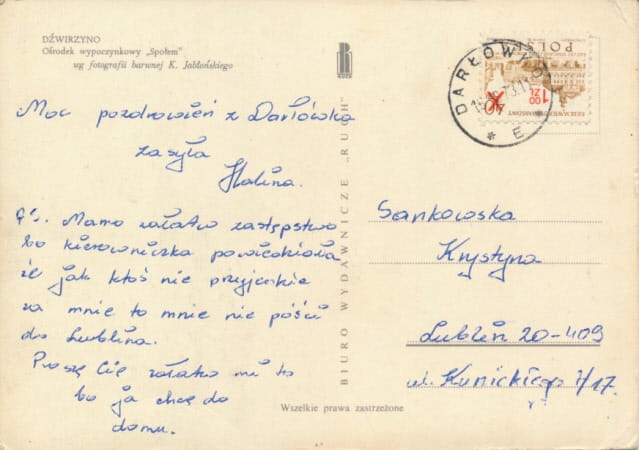 DŹWIRZYNO
Ośrodek wypoczynkowy „Społem”
wg fotografii barwnej K. Jabłońskiego
RUCH
Moc pozdrowień z Darłówka
zasyła
Halina.
PS. Mamo załatw zastępstwo
bo kierowniczka powiedziała
że jak ktoś nie przyjedzie
za mnie to mnie nie puści
do Lublina.
Proszę Cię załatw mi to
bo ja chcę do
domu.
BIURO WYDAWNICZE „RUCH”
Wszelkie prawa zastrzeżone
POLSKA
1.00 ZŁ
40
DARŁOWO
E
Sankowska
Krystyna
Lublin 20-409
ul. Kunickiego 7/17.